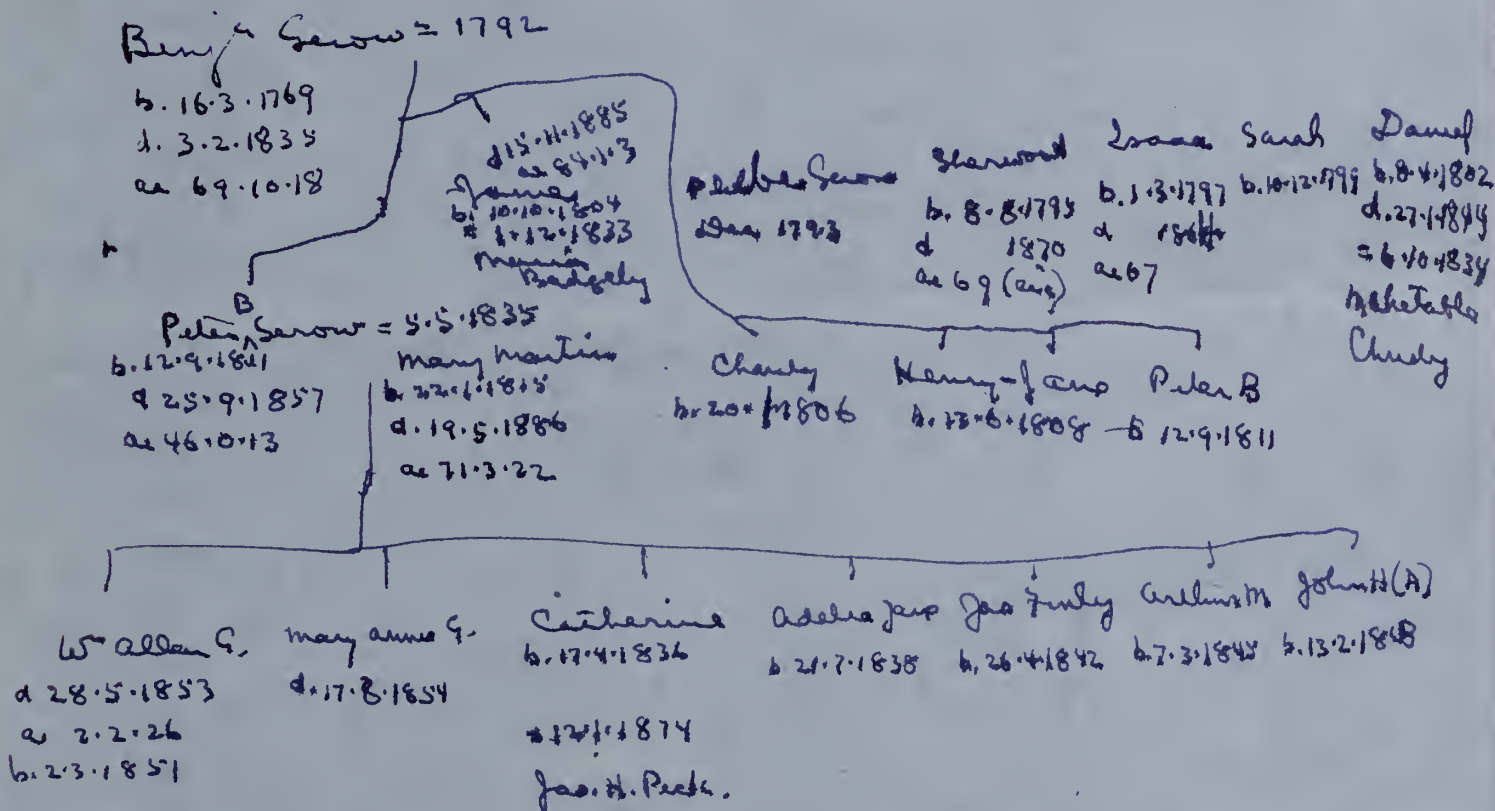 Benjn Gerow = 1792
b. 16.3.1769
d. 3.2.1835
ae 69.10.18
d 15.11.1885
ae 84.1.3
James
b. 10.10.1804
= 1.12.1833
Badgely
Gerow
Dec 1793
Sherwood
b. 8.8.1795
d 1870
ae 69 (sic)
Isaac
b. 1.3.1797
d 1864
ae 67
Sarah
b. 10.12.1799
Daniel
b. 8.4.1802
d. 27.1.1844
= 6.10.1834
Mehetable
Peter B Gerow = 5.5.1835
b. 12.9.1811
d 25.9.1857
ae 46.0.13
Mary Martin
b. 22.1.1815
d. 19.5.1886
ae 71.3.22
Charity
b. 20. 1806
Henry-Jane
b. 13.6.1808
Peter B
b 12.9.1811
Wm Allan G.
d 28.5.1853
a 2.2.26
b. 2.3.1851
Mary Anne G.
d. 17.8.1854
Catherine
b. 17.4.1836
= 12.1.1874
Jas. H. Peck.
Adelia Jane
b 21.7.1838
Jas Finley
b. 26.4.1842
Arthur M
b. 7.3.1845
John H (A)
b. 13.2.1848